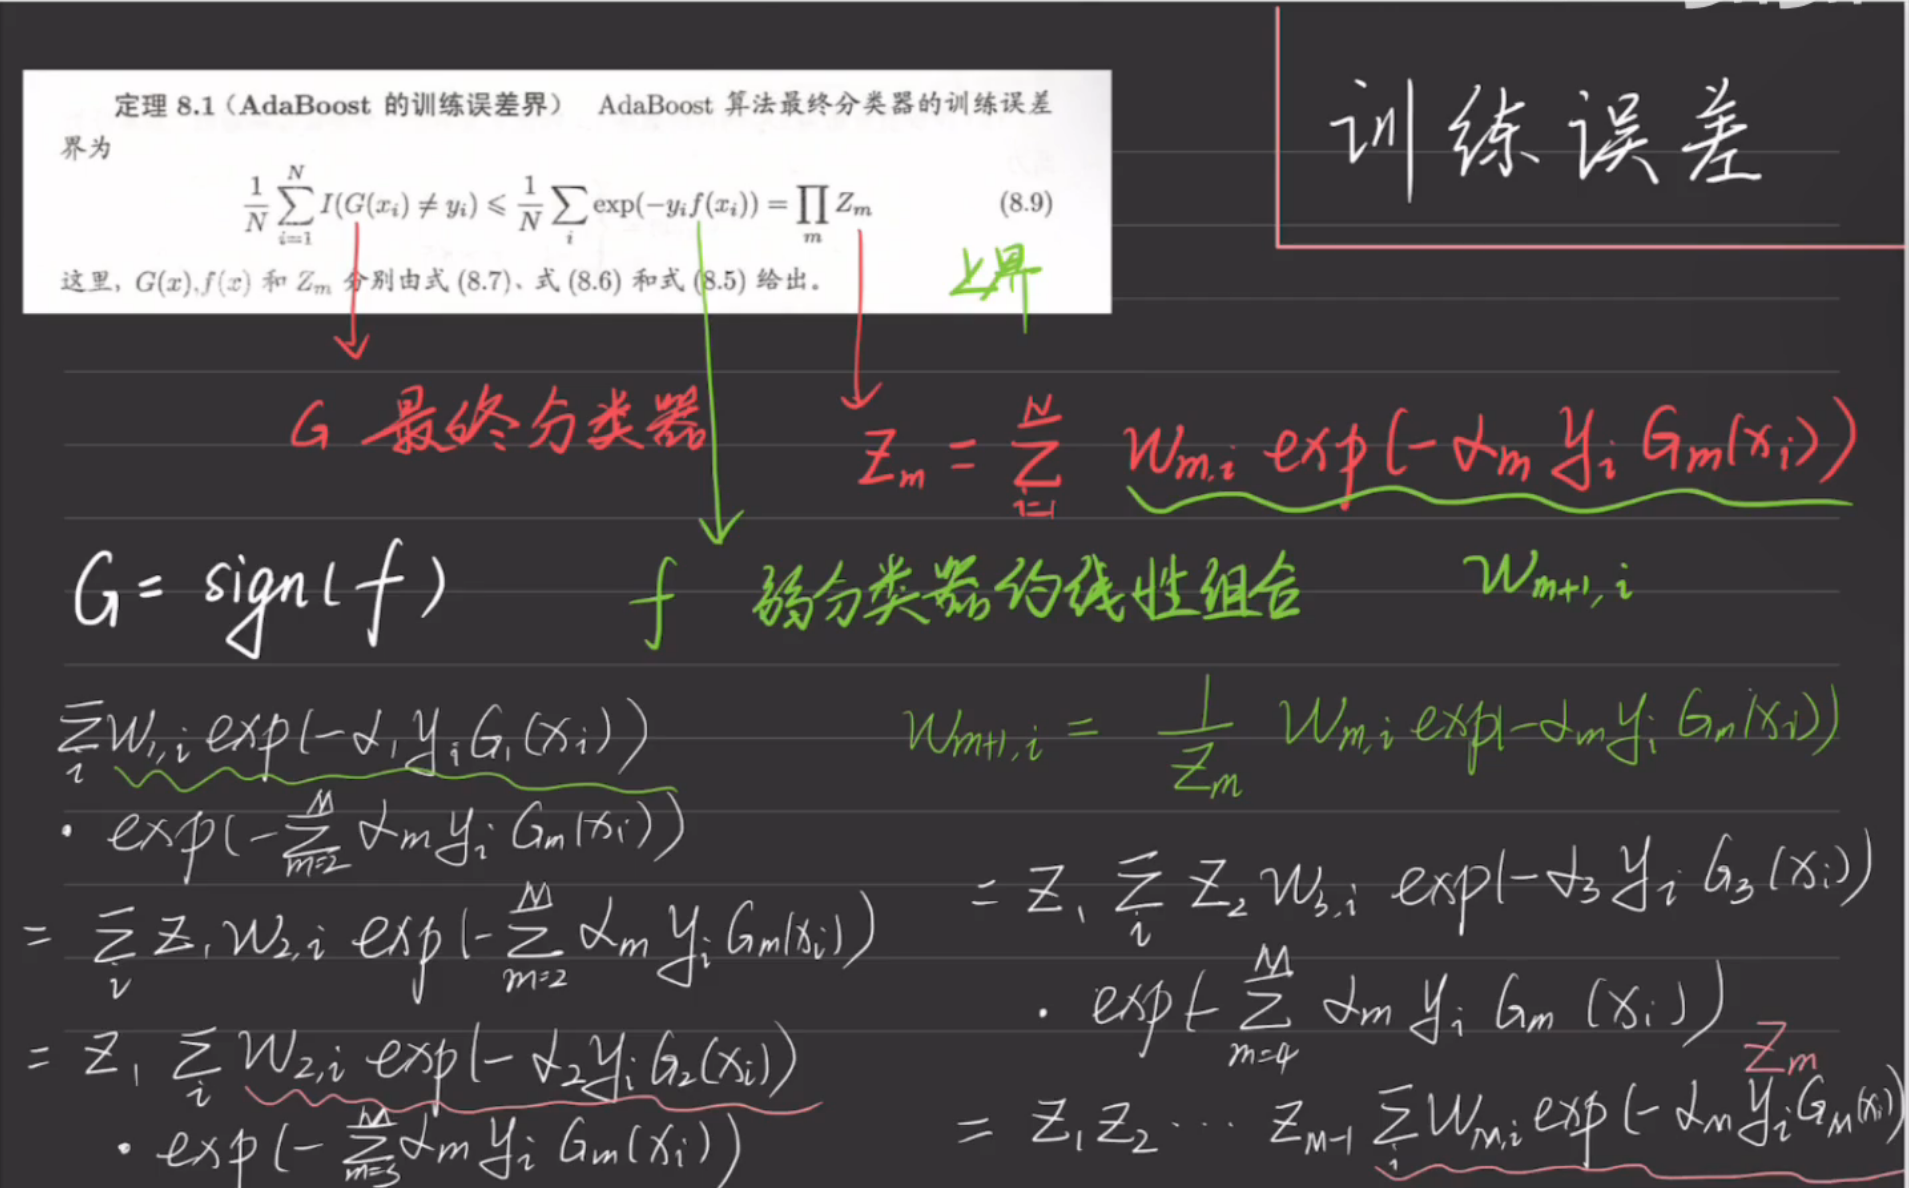 训练误差
定理 8.1（AdaBoost 的训练误差界） AdaBoost 算法最终分类器的训练误差
界为
\frac{1}{N}\sum_{i=1}^{N} I(G(x_i) \neq y_i) \leqslant \frac{1}{N}\sum_{i} \exp(-y_i f(x_i)) = \prod_{m} Z_m (8.9)
这里, G(x), f(x) 和 Z_m 分别由式 (8.7)、式 (8.6) 和式 (8.5) 给出。
上界
G 最终分类器
Z_m = \sum_{i=1}^{N} w_{m,i} exp(-α_m y_i G_m(x_i))
G = sign(f)
f 弱分类器的线性组合
w_{m+1,i}
\sum_i w_{1,i} exp(-α_1 y_i G_1(x_i))
· exp(-\sum_{m=2}^{M} α_m y_i G_m(x_i))
= \sum_i Z_1 w_{2,i} exp(-\sum_{m=2}^{M} α_m y_i G_m(x_i))
= Z_1 \sum_i w_{2,i} exp(-α_2 y_i G_2(x_i))
· exp(-\sum_{m=3}^{M} α_m y_i G_m(x_i))
w_{m+1,i} = \frac{1}{Z_m} w_{m,i} exp(-α_m y_i G_m(x_i))
= Z_1 \sum_i Z_2 w_{3,i} exp(-α_3 y_i G_3(x_i))
· exp(-\sum_{m=4}^{M} α_m y_i G_m(x_i))
Z_m
= Z_1 Z_2 ··· Z_{M-1} \sum_i w_{M,i} exp(-α_M y_i G_M(x_i))